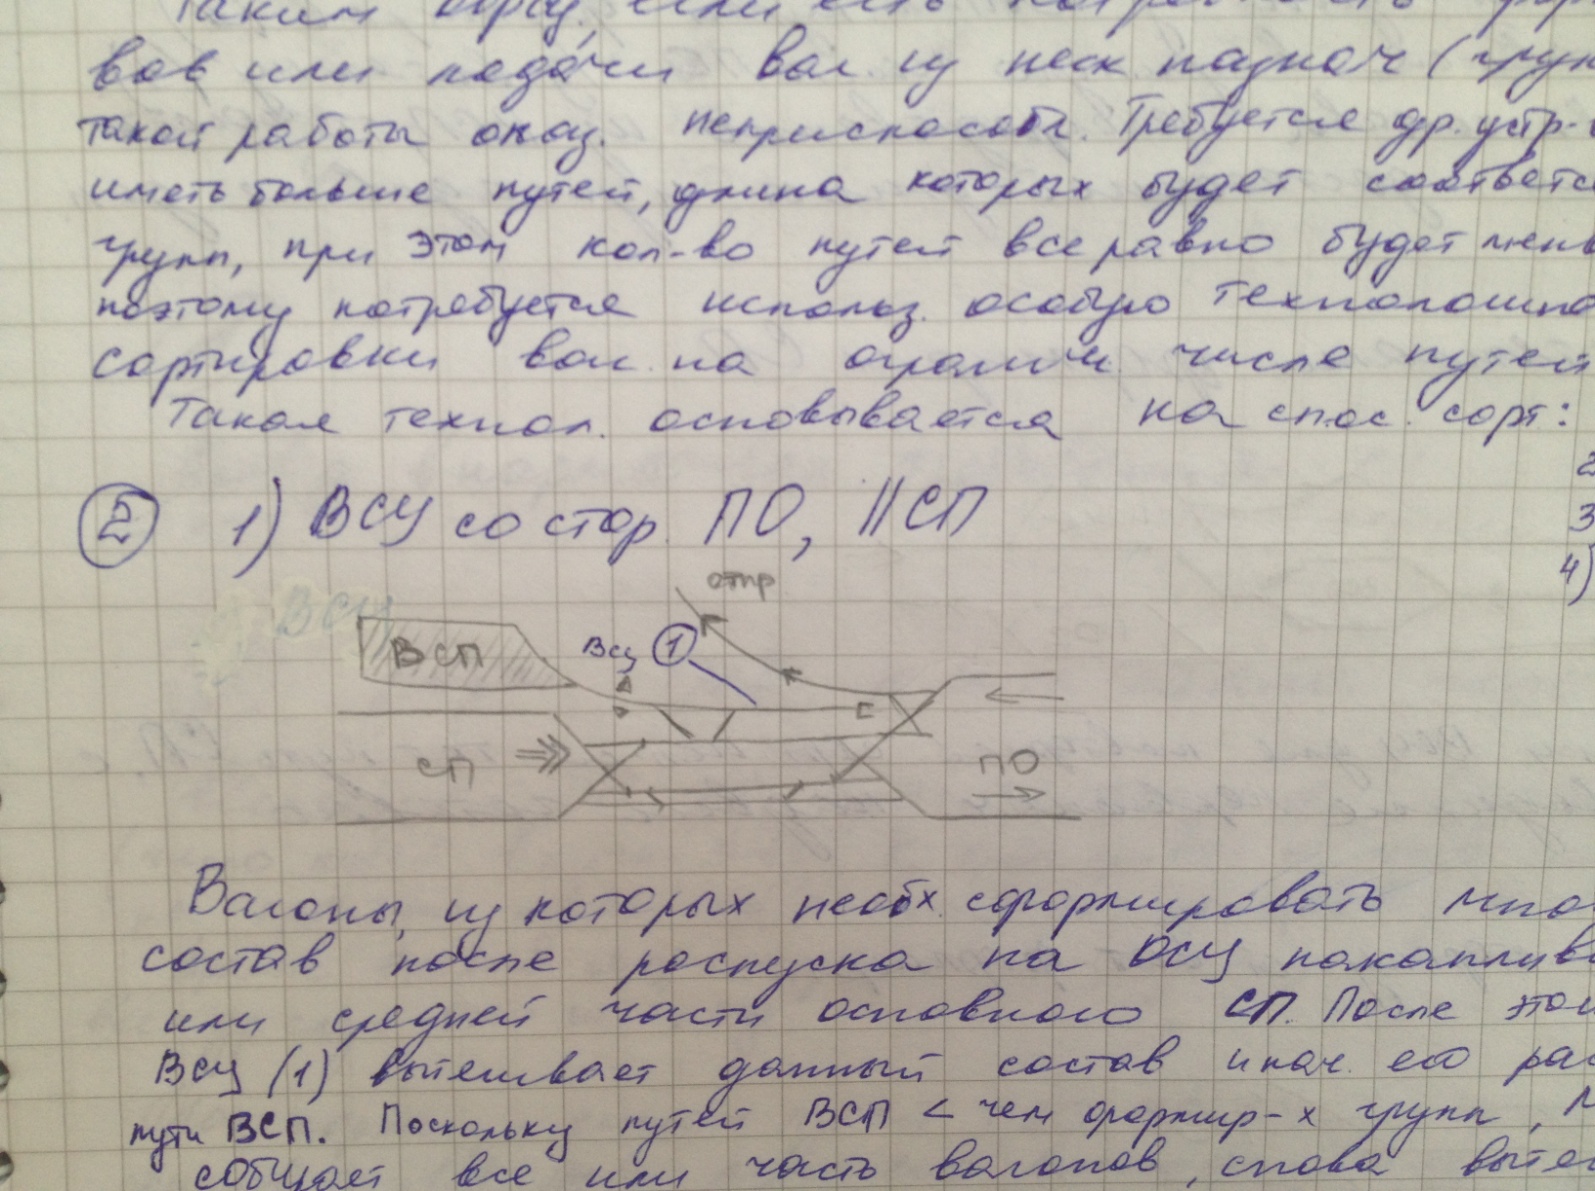 Таким
вов или подачи ваг. из неск. назнач (груп
такой работы оказ. неприспособл. Требуется др. устр-
иметь больше путей, длина которых будет соответс
групп, при этом кол-во путей все равно будет мень
поэтому потребуется использ. особую технологию
сортировки ваг. на огранич. числе путей
Такая технол. основывается на спос. сорт:
2
3
4)
② 1) ВСУ со стор. ПО, ||СП
отпр
ВСУ
ВСП
ВСУ ①
СП
ПО
Вагоны, из которых необх. сформировать мног
состав после роспуска на ОСУ накаплив
или средней части основного СП. После этог
ВСУ (1) вытягивает данный состав и нач. его рас
пути ВСП. Поскольку путей ВСП < чем формир-х групп,
собирает все или часть вагонов, снова вытяг